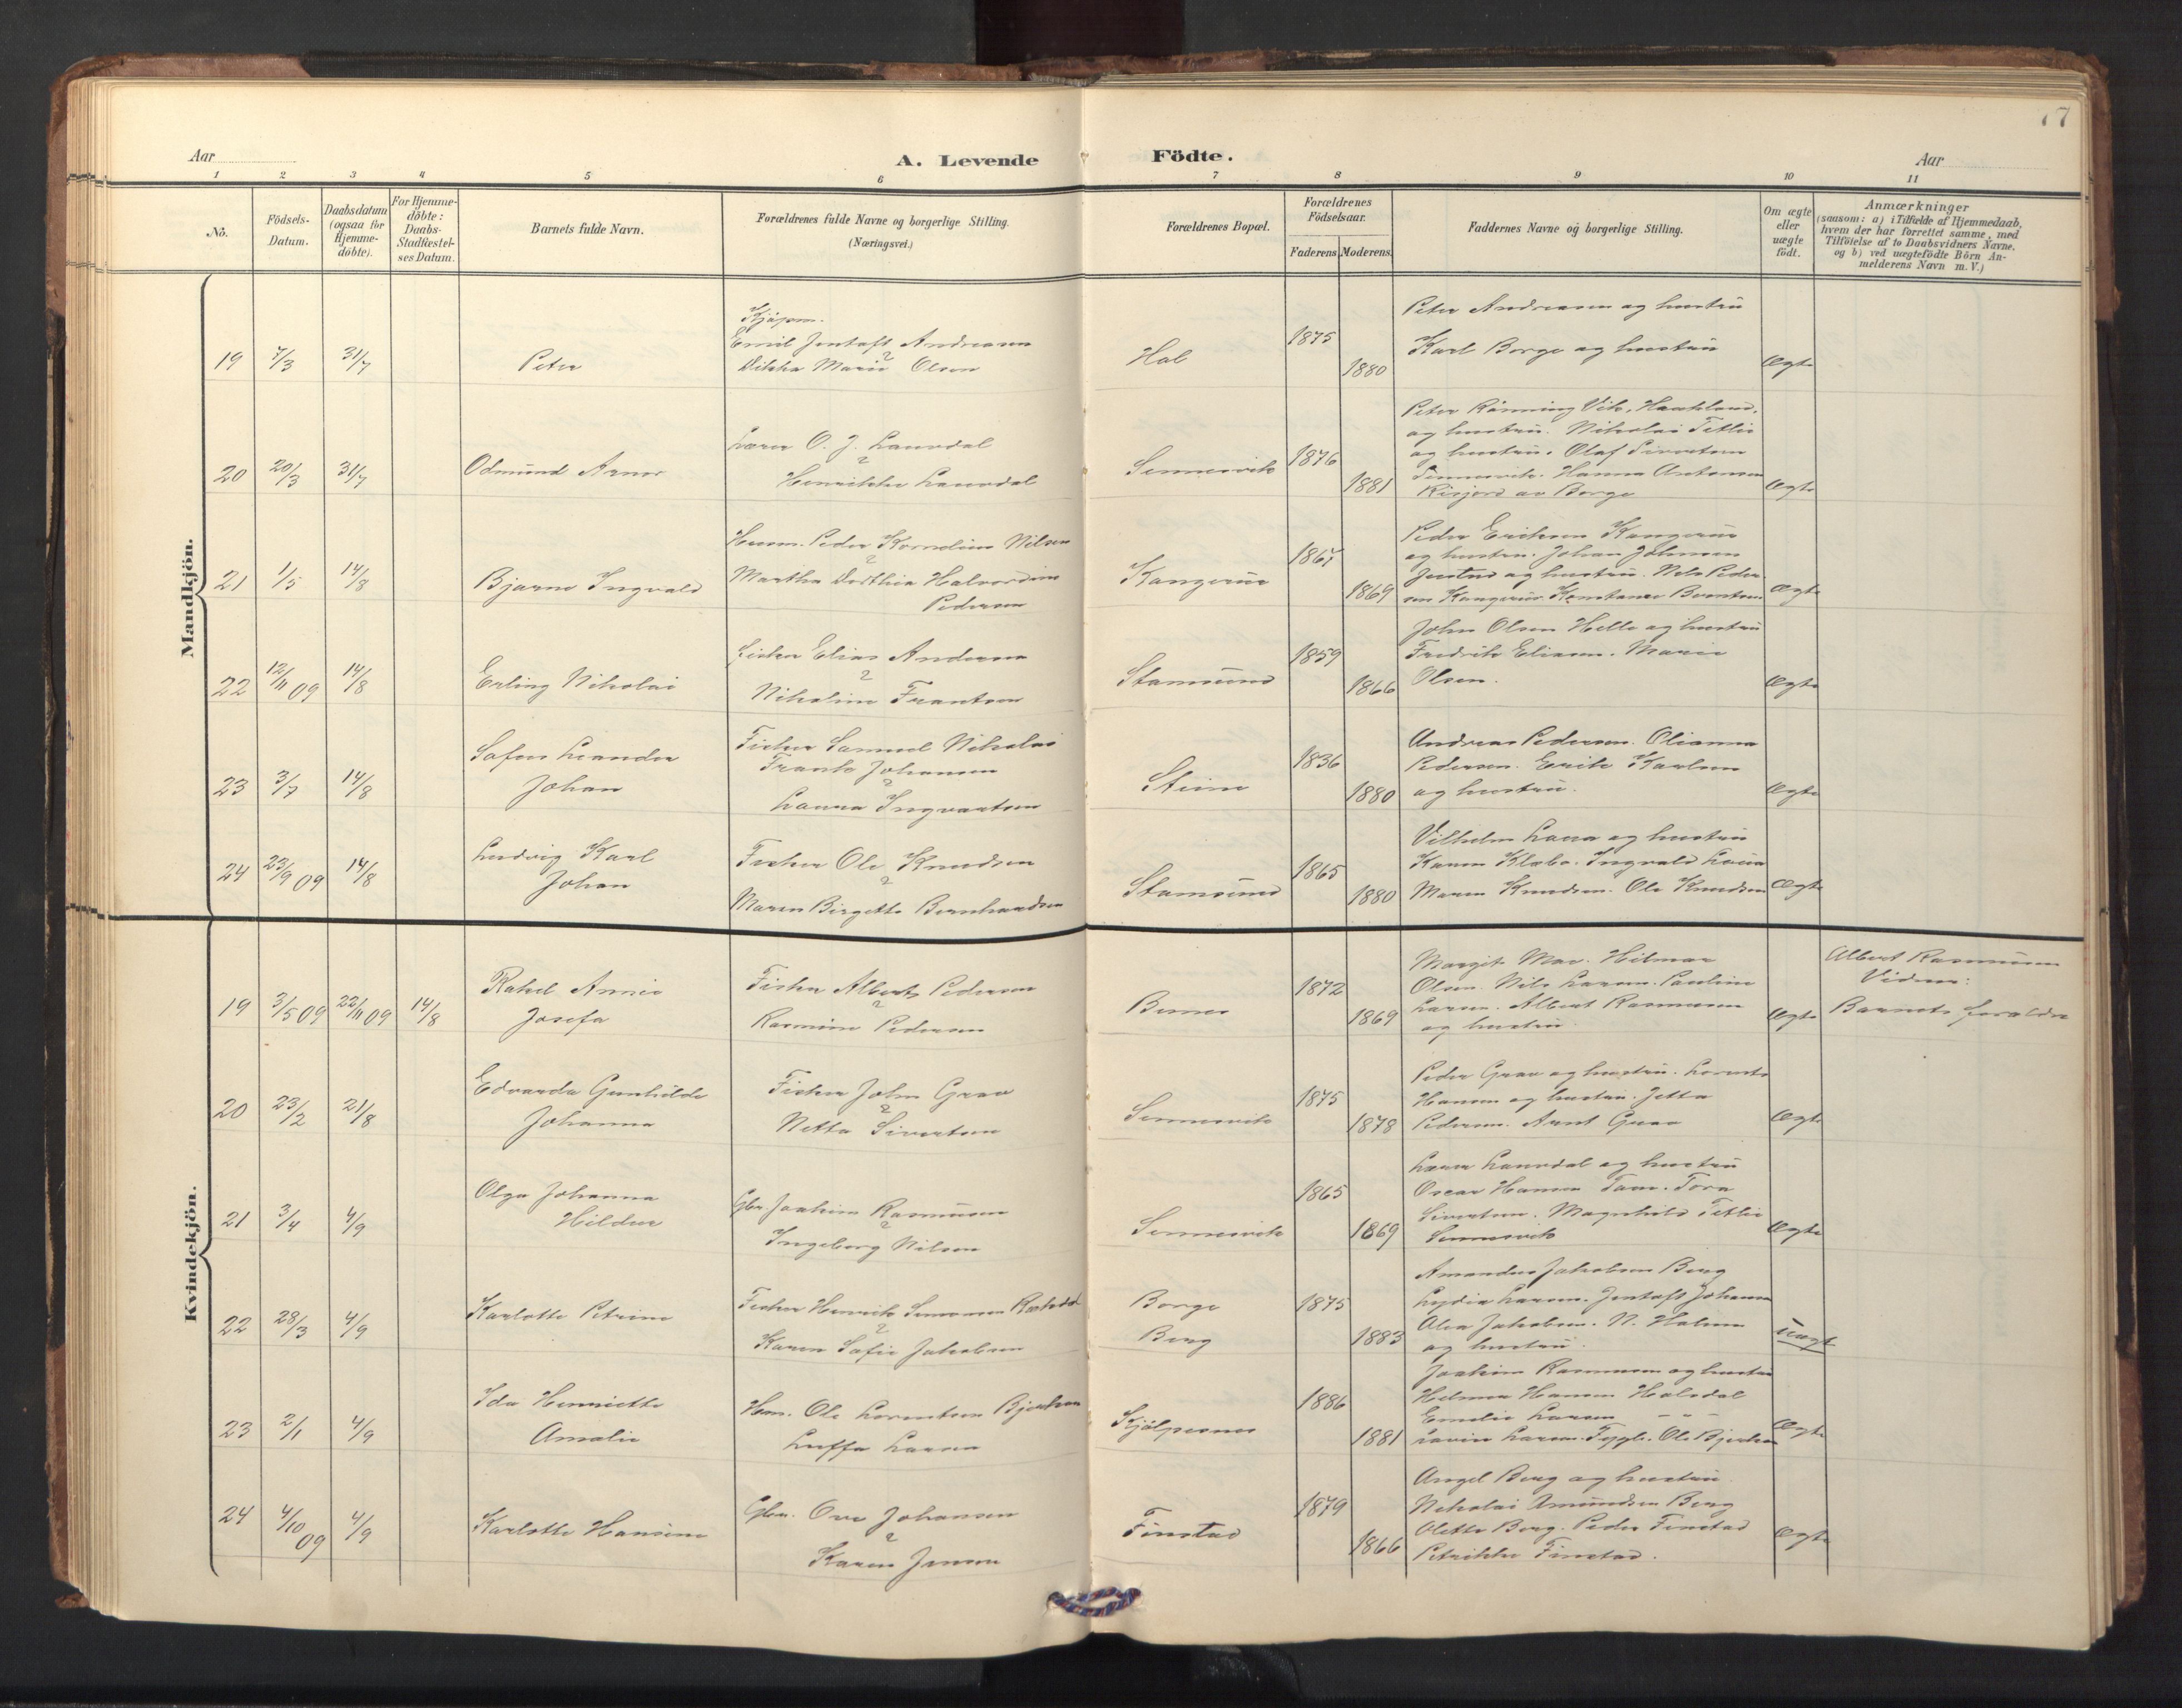 17
Aar
A. Levende Födte.
Aar
1 2 3 4 5 6 7 8 9 10 11
No.
Födsels-Datum.
Daabsdatum (ogsaa for Hjemme-döbte).
For Hjemme-döbte: Daabs-Stadfæstel-ses Datum.
Barnets fulde Navn.
Forældrenes fulde Navne og borgerlige Stilling.
(Næringsvei.)
Forældrenes Bopæl.
Forældrenes Födselsaar.
Faderens Moderens
Faddernes Navne og borgerlige Stilling.
Om ægte eller uægte födt.
Anmærkninger
(saasom: a) i Tilfælde af Hjemmedaab,
hvem der har forrettet samme, med
Tilföielse af to Daabsvidners Navne.
og b) ved uægtefödte Börn An-
melderens Navn m. V.)
Mandkjön.
Kjöpm.
Emil Jentoft Andreasen
19 7/3 31/7 Peter
Marie Olsen
Hol 1875 1880
Peter Andreasen og hustru
Karl Borge og hustru
Ægte
20 20/3 31/7 Odmund Arnor
Lærer O. J. Laurdal
Henrikke Laurdal
Sennesvik 1876 1881
Peter Rönning Vik,
og hustru. Nikolai Tetlie
og hustru. Olaf Sivertsen
Sennesvik. Hanna Antonsen
av Borge
Ægte
21 1/5 14/8 Bjarne Ingvald
Husm. Peder Kornelius Nilsen
Martha Dorthea
Pedersen
Kangerur 1867 1869
Peder Eriksen Kangerur
og hustru. Johan Johnsen
Justad og hustru. Nels Peder-
sen Kangerur. Konstanse Berntsen
Ægte
22 12/11 09 14/8 Erling Nikolai
Fisker Elias Andersen
Nikoline Frantsen
Stamsund 1859 1866
John Olsen Helle og hustru
Fredrik Eliasen. Marie
Olsen.
Ægte
23 3/7 14/8 Sofus Leander
Johan
Fisker Samuel Nikolai
Frank Johansen
Laura Ingvartsen
Steine 1836 1880
Andreas Pedersen. Olianna
Pedersen. Erik Karlsen
og hustru.
Ægte
24 23/9 09 14/8 Ludvig Karl
Johan
Fisker Ole Knudsen
Maren Birgette Bernhardsen
Stamsund 1865 1880
Vilhelm Laua og hustru
Karen Klæbo. Ingvald Laua
Maren Knudsen. Ole Knudsen
Ægte
Kvindekjön.
19 3/5 09 22/11 09 14/8 Rakel Annie
Josefa
Fisker Albert Pedersen
Rasmine Pedersen
1872 1869
Margit Mar. Hilmar
Olsen. Nils Larsen. Pauline
Larsen. Albert Rasmussen
og hustru.
Ægte
Albert Rasmussen
Vidner:
Barnets forældre
20 23/2 21/8 Edvarda Gunhilde
Johanna
Fisker John Grav
Netta Sivertsen
Sennesvik 1875 1878
Peder Grav og hustru. Lorents
Hansen og hustru. Jetta
Pedersen. Arnt Grav
Ægte
21 3/4 4/9 Olga Johanna
Hildur
Gbr. Joakim Rasmussen
Ingeborg Nilsen
Sennesvik 1865 1869
Lærer Laurdal og hustru
Oscar Hansen Tora
Sivertsen. Magnhild Tetlie
Sennesvik
Ægte
22 28/3 4/9 Karlotte Petrine
Fisker Henrik Simonsen
Karen Sofie Jakobsen
Borge
Berg
1875 1883
Amandus Jakobsen Berg
Lydia Larsen. Jentoft Johansen
Olea Jakobsen. N. Halsen
og hustru.
Uægte
23 2/1 4/9 Ida Henriette
Amalie
Hm. Ole Lorentsen
Luffa Larsen
1886 1881
Joakim Rasmussen og hustru
Helmer Hansen Holsdal
Emelie Larsen — " —
Lovise Larsen. Ole
Ægte
24 4/10 09 4/9 Karlotte Hansine
Gbr. Ove Johansen
Karen Jensen
Finstad 1879 1866
Angel Berg og hustru.
Nikolai Amundsen Berg
Olette Berg. Peder Finstad
Petrikke Finstad.
Ægte